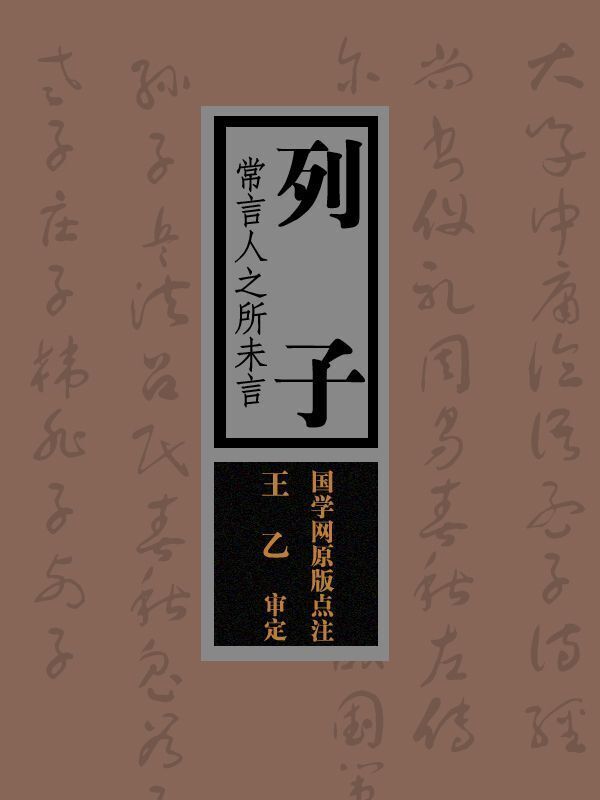 列子
常言人之所未言
国学网原版点注
王乙 审定
大学中庸论语孟子诗经
尚书仪礼周易春秋左传
尔
国
孙子兵法吕氏春秋鬼谷
老子庄子韩非子列子